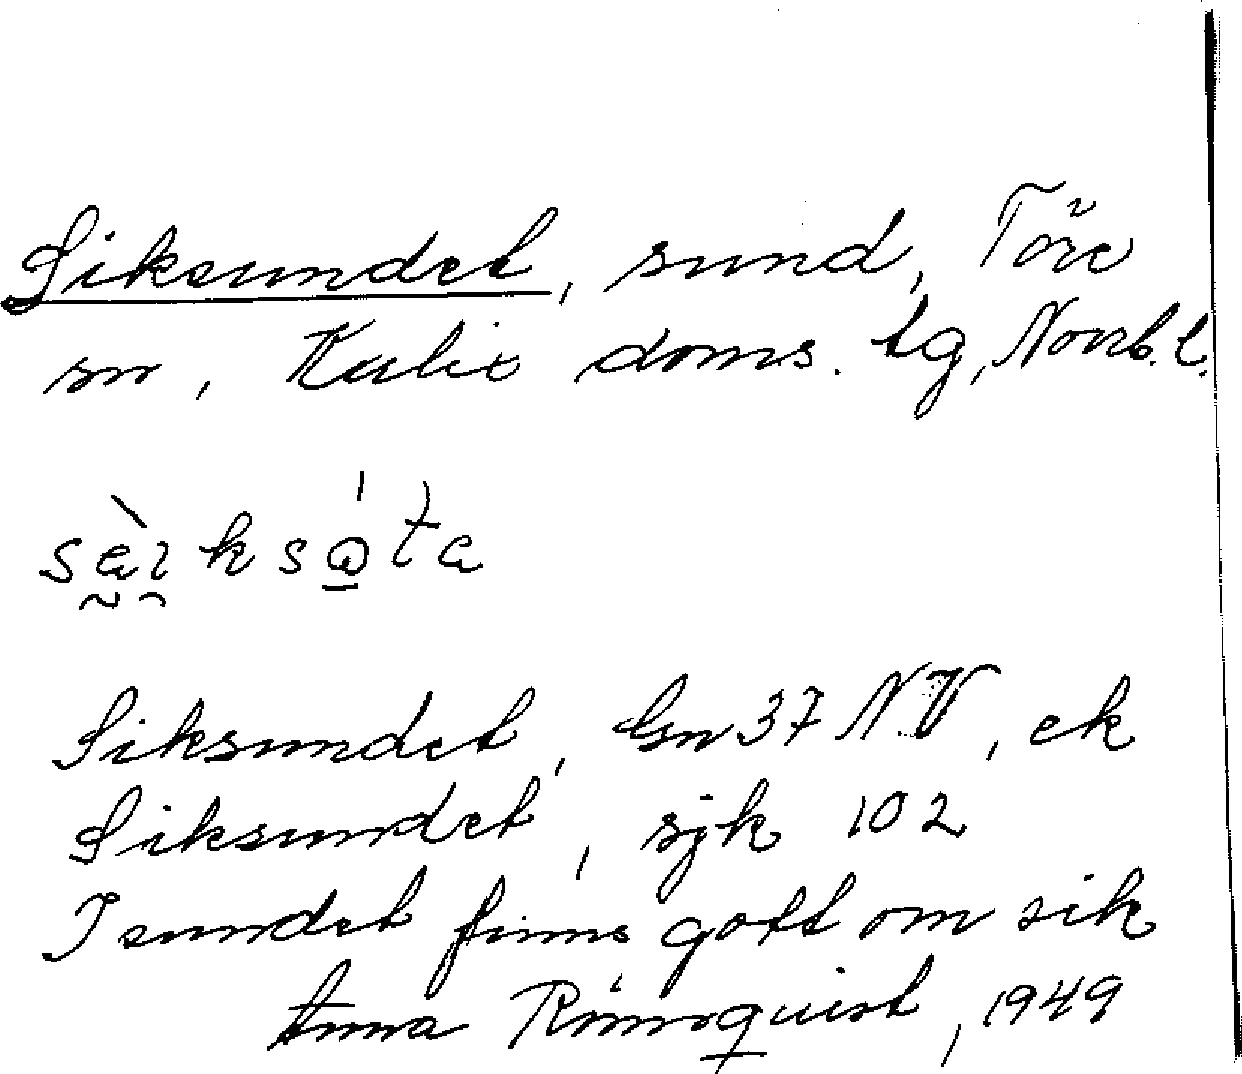 Siksundet, sund, Töre
sn, Kalix doms. tg, Norrb. l.
Siksundet, Gn 37 N.V, ek
Siksundet, sjk 102
I sundet finns gott om sik
Anna Rönnquist, 1949